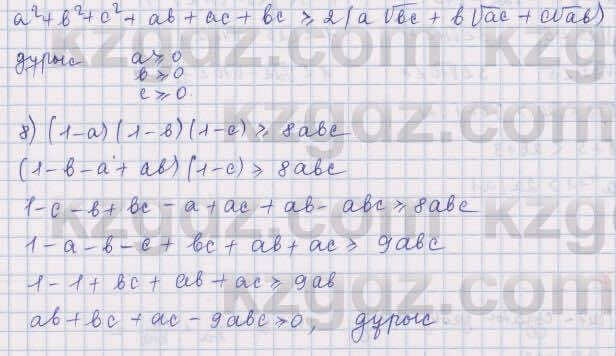 a² + b² + c² + ab + ac + bc ≥ 2(a√bc + b√ac + c√ab)
дұрыс a ≥ 0
b ≥ 0
c ≥ 0
8) (1-a)(1-b)(1-c) ≥ 8abc
(1-b-a+ab)(1-c) ≥ 8abc
1-c-b+bc-a+ac+ab-abc ≥ 8abc
1-a-b-c+bc+ab+ac ≥ 9abc
1-1+bc+ab+ac ≥ 9ab
ab+bc+ac-9abc ≥ 0, дұрыс
kzgdz.com